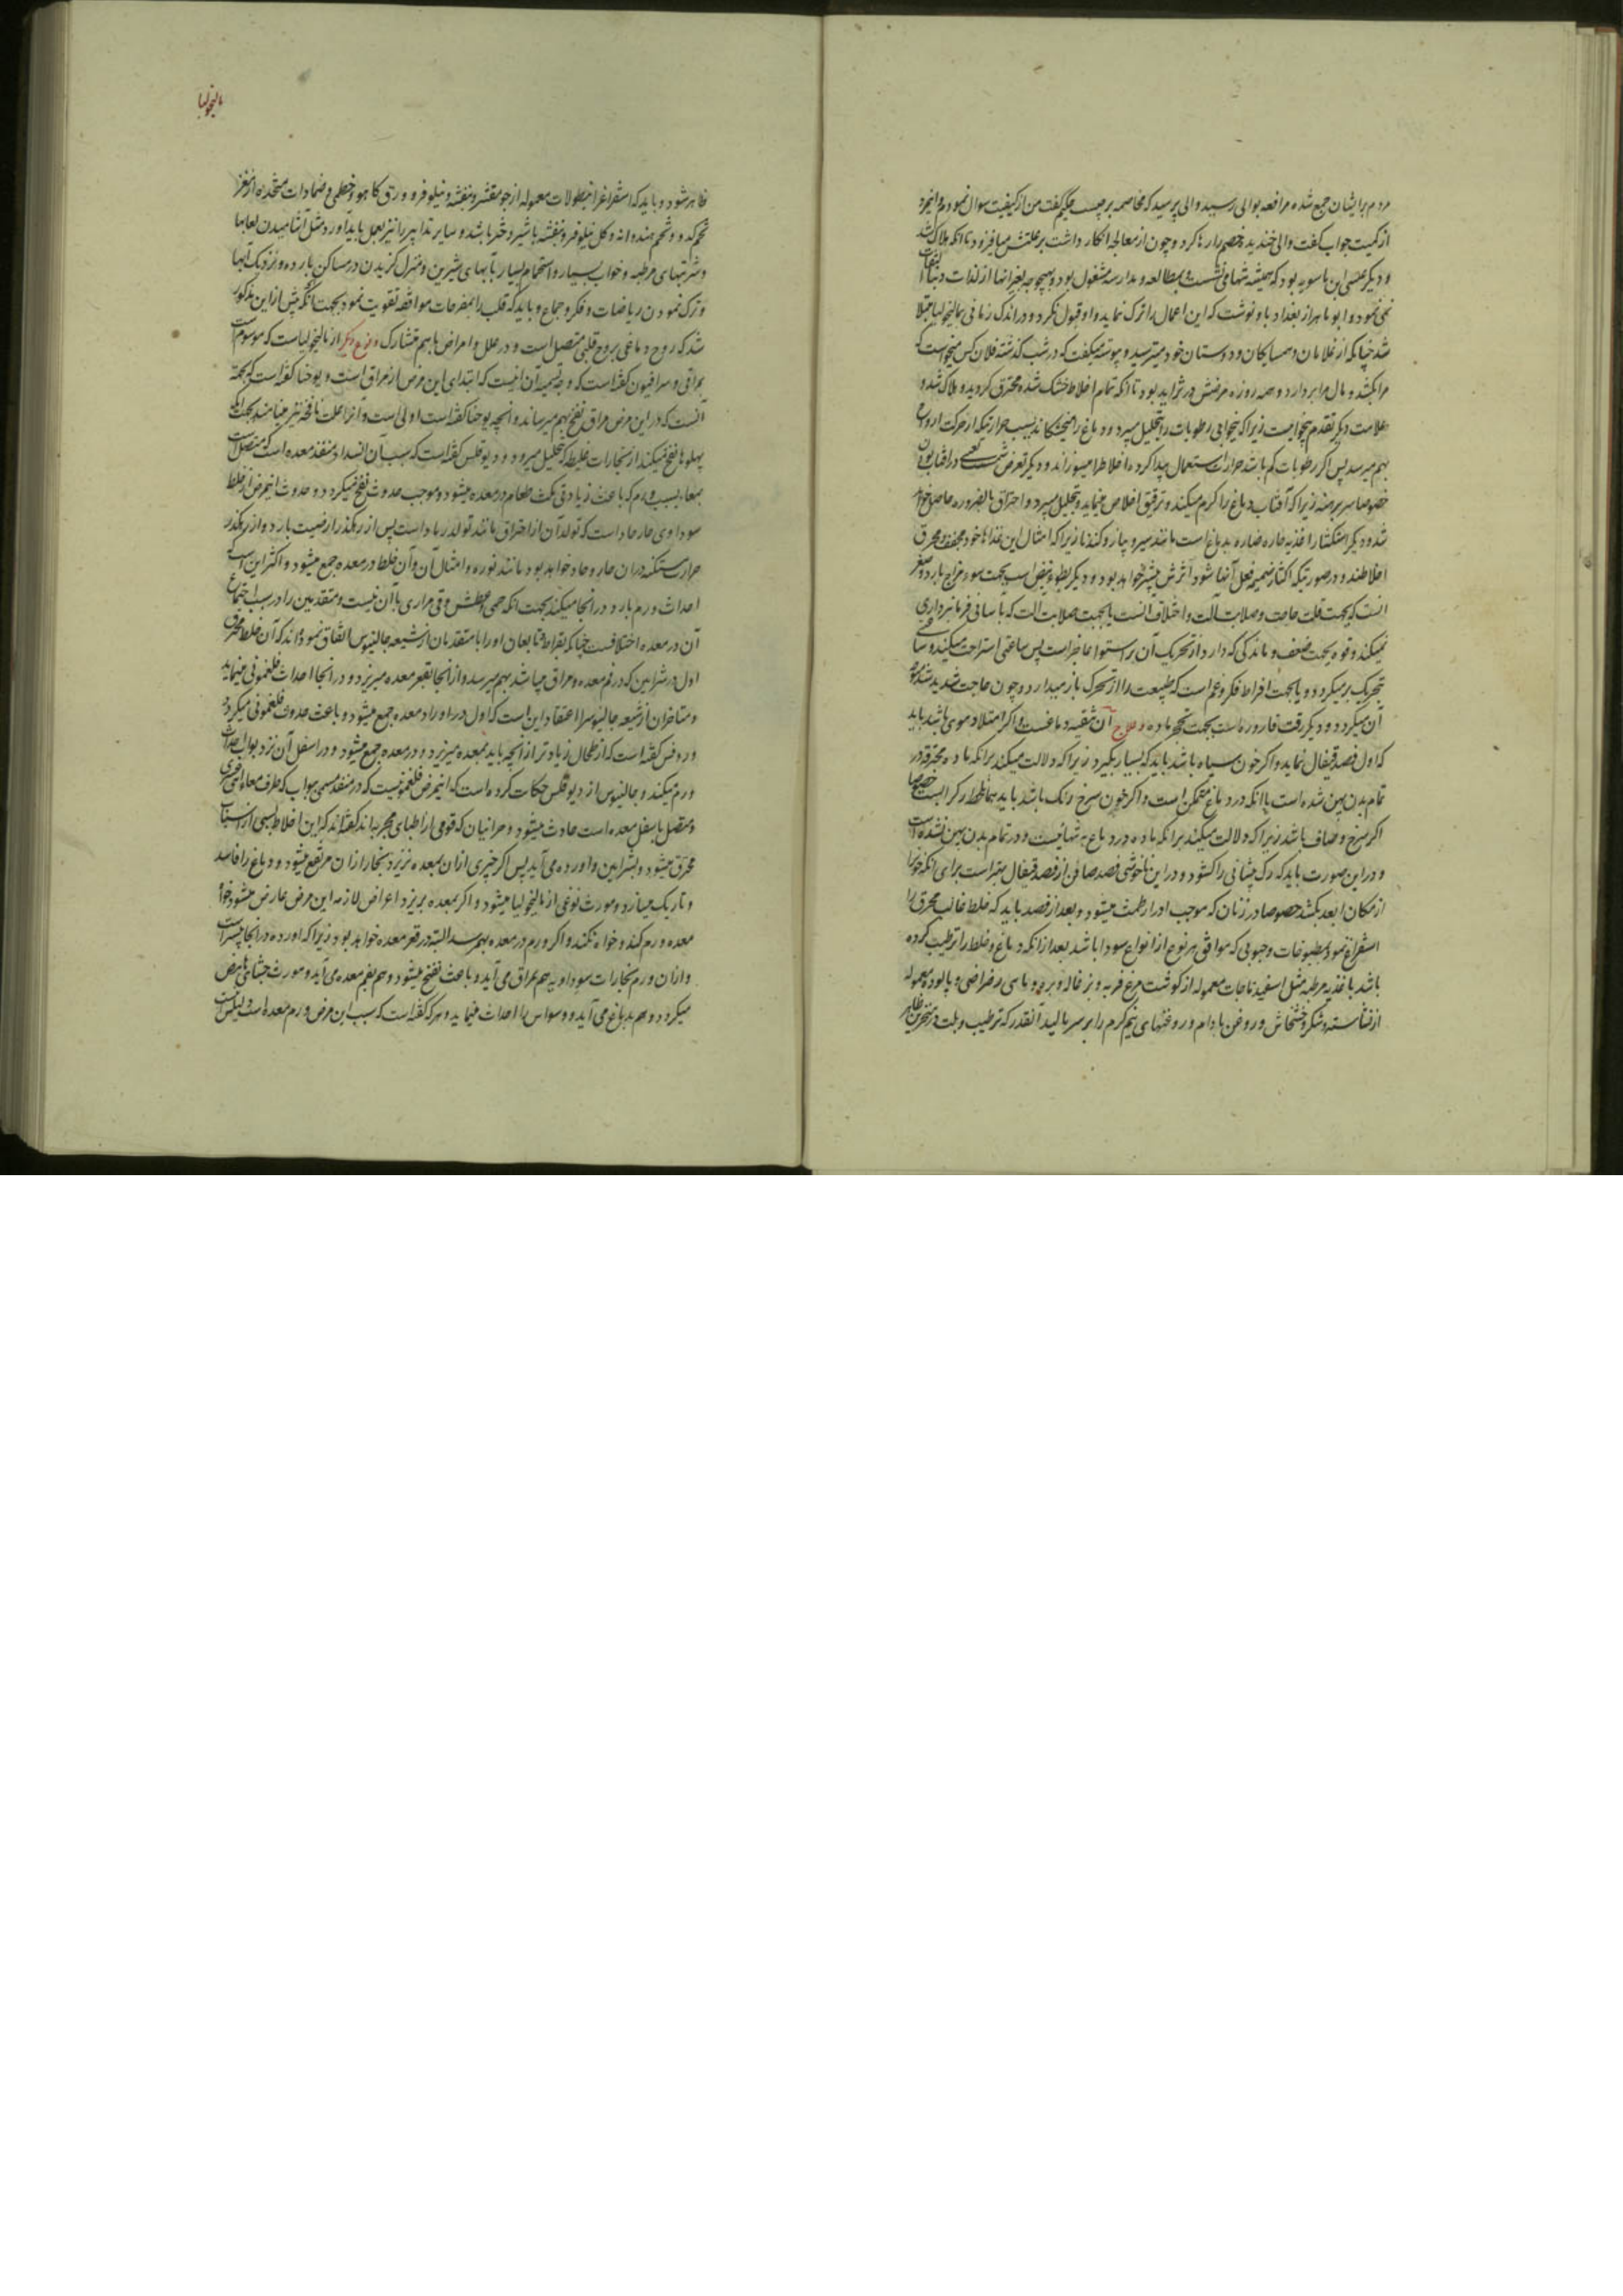 مردم برایشان جمع شده مرافعه بوالی رسید والی پرسید که مخاصمه بر چیست حکیم گفت من از کیفیت سوال نمودم
از کمیت جواب گفت والی خندید و خصم را رها کرد و چون از معالجه انکار داشت بر علتش میافزود تا انکه هلاک شد
و دیگر عیسی بن ماسویه بود که همیشه تنها می نشست و بمطالعه و مدارسه مشغول بود و بهیچوجه بغیر انها از لذات دنیا
نمی نمود و ابو ماهر از بغداد باو نوشت که این اعمال را ترک نماید و او قبول نکرد و در اندک زمانی بمالیخولیا مبتلا
شد چنانکه از غلامان و همسایکان و دوستان خود میترسید و پیوسته میکفت که در شب گذشته فلان کس میخواست که
مرا بکشد و مال مرا بردارد و همه روزه مرضش در تزاید بود تا انکه تمام اخلاط خشک شده محترق کردید و هلاک شد و
علامت دیگر تقدم بیخوابیست زیرا که بیخوابی رطوبات را بتحلیل میبرد و دماغ را میخشکاند بسبب حرارتیکه از حرکت ارواح
بهم میرسد پس اکر رطوبات کم باشد حرارت استعمال پیدا کرده اخلاط را میسوزاند و دیگر تعرض شمس در افتاب بودن
خصوصا سر برهنه زیرا که آفتاب دماغ را کرم میکند و ترقیق اخلاص مینماید و بتحلیل میبرد و احتراق بالضروره حاصل خواهد
شد و دیگر استکثار اغذیه حاره ضاره بدماغ است مانند سیر و پیاز و کندنا زیرا که امثال این غذاها خود مجفف و محرق
اخلاطند و در صورتیکه اکثار ضمیمه فعل آنها شود اثرش بیشتر خواهد بود و دیگر بطوء نبض است بجهت سوء مزاج بارد و صغر
انست که بجهت قلت حاجت و صلابت آلت و اختلاف انست یا بجهت صلابت الت که بآسانی فرمانبرداری
نمیکند و قوه بجهت ضعف و ماندگی که دارد از تحریک آن بر استوا عاجز است پس ساعتی استراحت میکند و
تحریک برمیکردد و یا بجهت افراط فکر و غم است که طبیعت را از تحرک باز میدارد و چون حاجت شدید شد
آن میکردد و دیگر رقت قاروره است بجهت تحجر ماده و علاج آن تنقیه دماغست و اکر امتلا دموی باشد باید
که اول فصد قیفال نماید و اکر خون سیاه باشد باید که بسیار بکیرد زیرا که دلالت میکند برانکه ماده محترقه در
تمام بدن پهن شده است یا انکه در دماغ متمکن است و اکر خون سرخ رنک باشد باید همانلحظه رک را بست خصوصا
اکر سرخ و صاف باشد زیرا که دلالت میکند برانکه ماده در دماغ بتنهائیست و در تمام بدن پهن نشده است
و در این صورت باید که رک پیشانی را کشود و در این ناخوشی فصد صافن از فصد قیفال بهتر است برای انکه خون را
از مکان ابعد بکشد خصوصا در زنان که موجب ادرار طمث میشود و بعد از فصد باید که خلط غالب محترق را
استفراغ نمود بمطبوخات و حبوبی که موافق هر نوع از انواع سودا باشد بعد از انکه دماغ و خلط را ترطیب کرده
باشد باغذیه مرطبه مثل اسفیدباجات معموله از کوشت مرغ فربه و بزغاله و بره و ماسی رضراضی و پالوده معموله
از نشاسته و شکر و خشخاش و روغن بادام و روغنهای نیم کرم را بر سر مالید آنقدر که ترطیب و بلت در منخرین ظاهر
مالیخولیا
ظاهر شود و باید که استفراغ را بنطولات معموله از جو مقشر و بنفشه و نیلوفر و ورق کاهو و خطمی و ضمادات متخذه از مغز
تخم کدو و تخم هندوانه و کل نیلوفر و بنفشه با شیر دختر باشد و سایر تدابیر را نیز بعمل باید آورد مثل آشامیدن لعابها
و شربتهای مرطبه و خواب بسیار و استحمام بسیار بآبهای شیرین و منزل کزیدن در مساکن بارده و نزدیک آبها
و ترک نمودن ریاضات و فکر و جماع و باید که قلب را بمفرحات موافقه تقویت نمود بجهت انکه پیش از این مذکور
شد که روح دماغی بروح قلبی متصل است و در علل و امراض باهم متشارک و نوع دیگر از مالیخولیاست که موسوم است
بمراقی و سرافیون گفته است که وجه تسمیه آن اینست که ابتدای این مرض از مراق است و یوحنا گفته است که بجهة
آنست که در این مرض مراق نفخ بهم میرساند و انچه یوحنا گفته است اولی است و آنرا علت نافخه نیز مینامند بجهت انکه
پهلوها نفخ میکند از بخارات غلیظه که بتحلیل میرود و دیوقلس گفته است که سبب آن انسداد منفذ معده است که متصل است
بمعاء بسبب ورم که باعث زیادتی مکث طعام در معده میشود و موجب حدوث نفخ میکردد و حدوث اینمرض از خلط
سوداوی حار حاد است که تولد آن از احتراق مانند تولد رماد است پس از رهکذر ارضیت بارد و از رهکذر
حرارت مستکنه در ان حار و حاد خواهد بود مانند نوره و امثال آن و آن خلط در معده جمع میشود و اکثر این است که
احداث ورم بارد در انجا میکند بجهت انکه حمی و عطش و قی مراری با آن نیست و متقدمین را در سبب اجتماع
آن در معده اختلافست چنانکه بقراط و تابعان او را با متقدمان از شیعه جالینوس اتفاق نموده اند که آن خلط محترق
اول در شرایین که در فم معده و مراق میباشد بهم میرسد و از آنجا بقعر معده میریزد و در انجا احداث فلغمونی مینماید
و متاخران از شیعه جالینوس را اعتقاد این است که اول در اوراد معده جمع میشود و باعث حدوث فلغمونی میکردد
و روفس گفته است که از طحال زیادتر از انچه باید بمعده میریزد و در معده جمع میشود و در اسفل آن نزد بواب احداث
ورم میکند و جالینوس از دیوقلس حکایت کرده است که اینمرض فلغمونیست که در منفذ مسمی ببواب که طرف معاء
و متصل باسفل معده است حادث میشود و حرانیان که قومی از اطبای مجربه اند گفته اند که این اخلاط بسببی از اسباب
محترق میشود و بشرایین و اورده می آید پس اکر چیزی از ان بمعده نریزد بخار از ان مرتفع میشود و دماغ را فاسد
و تاریک میسازد و مورث نوعی از مالیخولیا میشود و اکر بمعده بریزد اعراض لازمه این مرض عارض میشود خواه
معده ورم کند و خواه نکند و اکر ورم در معده بهم رسد البته در قعر معده خواهد بود زیرا که اورده در انجا بیشتر است
و از ان ورم بخارات سوداویه هم بمراق می آید و باعث نفخ میشود و هم بفم معده می آید و مورث جشای حامض
میکردد و هم بدماغ می آید و وسواس را احداث مینماید و هر که گفته است که سبب این مرض ورم معده است